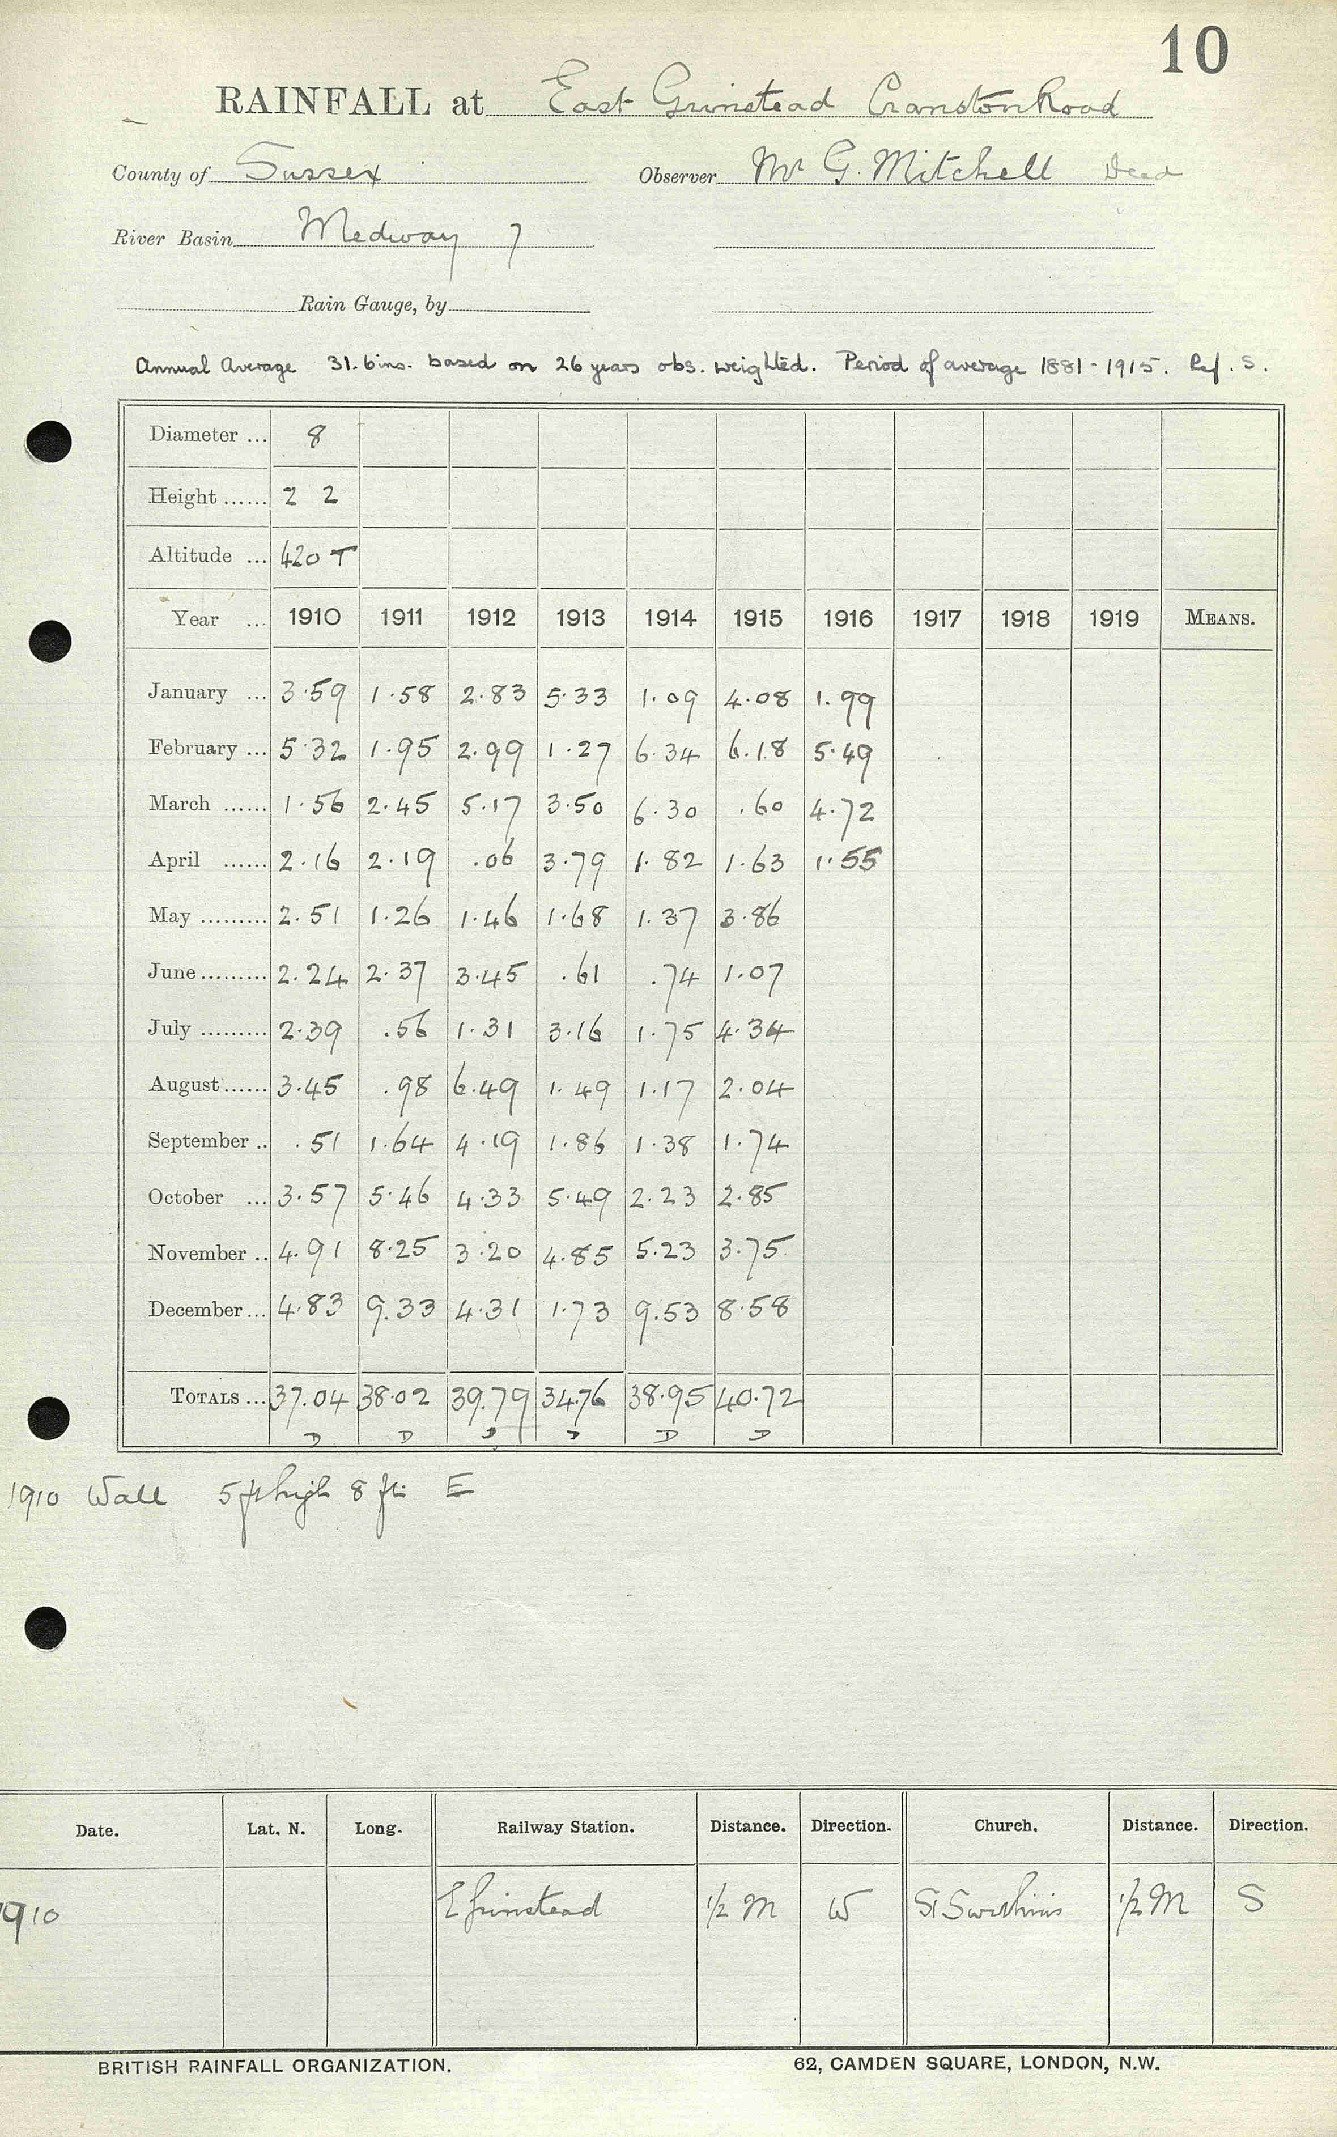 10
RAINFALL at East Grinstead Cranston Road
County of Sussex Observer Mr G. Mitchell Decd
River Basin Medway 7
Rain Gauge, by
Annual Average 31.6 ins. based on 26 years obs. weighted. Period of average 1881-1915. Ref. S.
Diameter ... 8
Height ...... 2 2
Altitude ... 420 T
Year ... 1910 1911 1912 1913 1914 1915 1916 1917 1918 1919 MEANS.
January ... 3.59 1.58 2.83 5.33 1.09 4.08 1.99
February ... 5.32 1.95 2.99 1.27 6.34 6.18 5.49
March ...... 1.56 2.45 5.17 3.50 6.30 .60 4.72
April ...... 2.16 2.19 .06 3.79 1.82 1.63 1.55
May ......... 2.51 1.26 1.46 1.68 1.37 3.86
June ......... 2.24 2.37 3.45 .61 .74 1.07
July ......... 2.39 .56 1.31 3.16 1.75 4.34
August ...... 3.45 .98 6.49 1.49 1.17 2.04
September .. .51 1.64 4.19 1.86 1.38 1.74
October ... 3.57 5.46 4.33 5.49 2.23 2.85
November .. 4.91 8.25 3.20 4.85 5.23 3.75
December ... 4.83 9.33 4.31 1.73 9.53 8.58
TOTALS ... 37.04 38.02 39.79 34.76 38.95 40.72
D D D D D D
1910 Wall 5 ft high 8 ft E
Date. Lat. N. Long. Railway Station. Distance. Direction. Church. Distance. Direction.
1910 E Grinstead 1/2 M W St Swithins 1/2 M S
BRITISH RAINFALL ORGANIZATION. 62, CAMDEN SQUARE, LONDON, N.W.